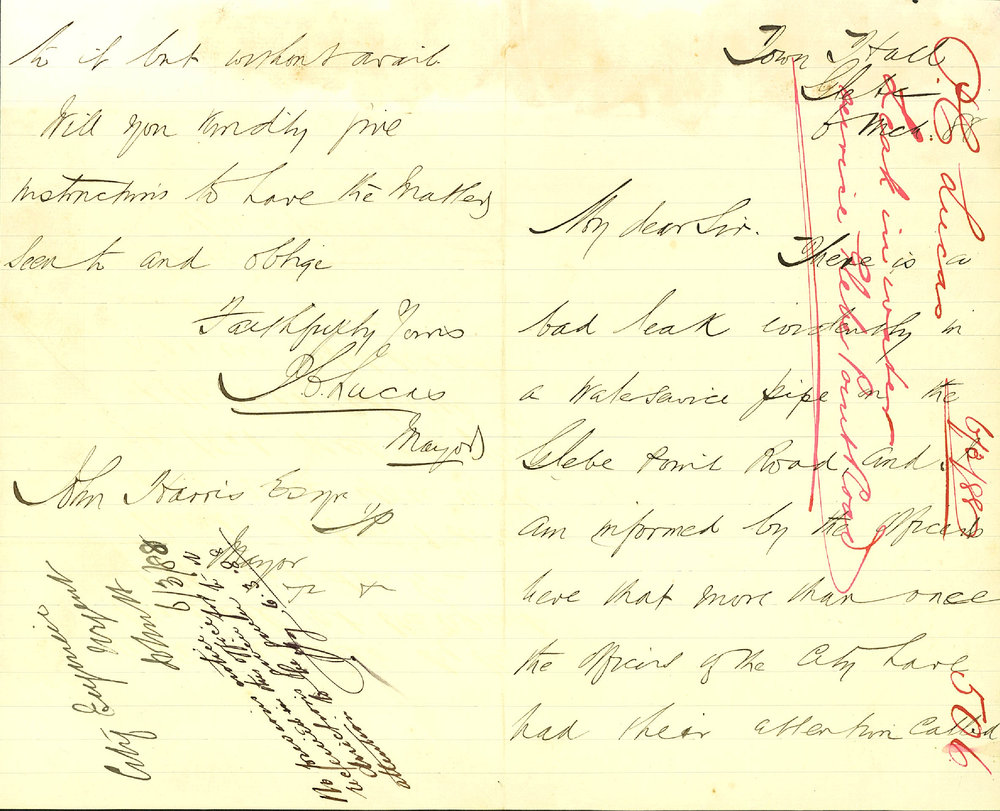 Town Hall
Glebe
6 Mch. 88
My dear Sir.
There is a
bad leak evidently in
a Water service pipe on the
Glebe Point Road and I
am informed by the Officers
here that more than once
the Officers of the City have
had their attention called
to it but without avail
Will you kindly give
instructions to have the Matter
seen to and oblige
Faithfully Yours
Lucas
Mayor
John Harris Esqre
Mayor
City Engineer
Urgent
6/3/88
No previous
6.3.88
Lucas
Leak in water
service Glebe Point Road
6/3/88
506